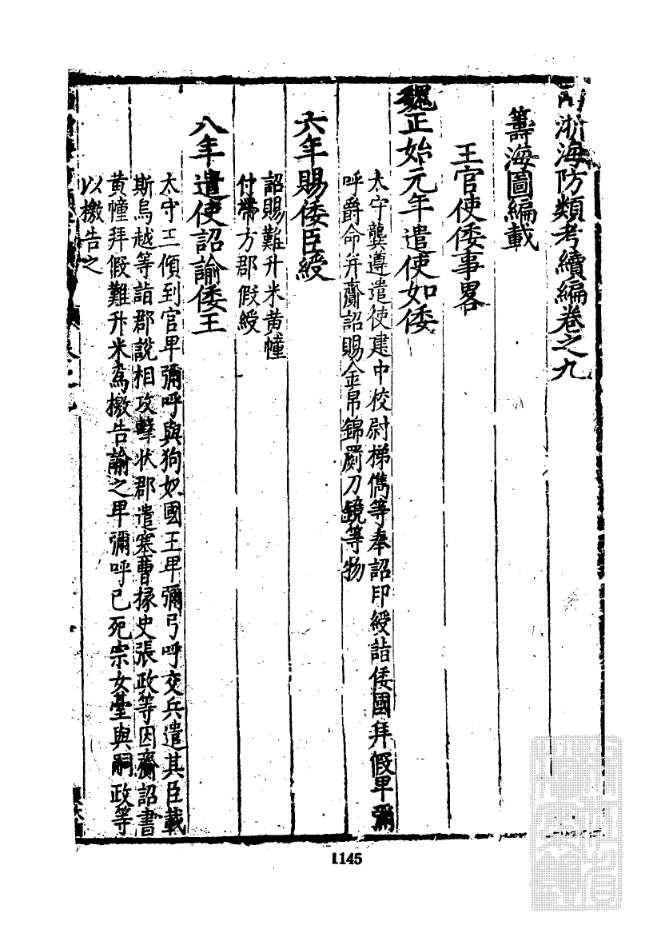 兩浙海防類考續編卷之九
籌海圖編載
王官使倭事畧
魏正始元年遣使如倭
太守龔遵遣使建中校尉梯儁等奉詔印綬詣倭國拜假卑彌
呼爵命并齎詔賜金帛錦罽刀鏡等物
六年賜倭臣綬
詔賜難升米黃幢
付帶方郡假綬
八年遣使詔諭倭王
太守王傾到官卑彌呼與狗奴國王卑彌弓呼交兵遣其臣載
斯烏越等詣郡說相攻擊狀郡遣塞曹掾史張政等因齎詔書
黃幢拜假難升米為檄告諭之卑彌呼已死宗女臺與嗣政等
以檄告之
1145